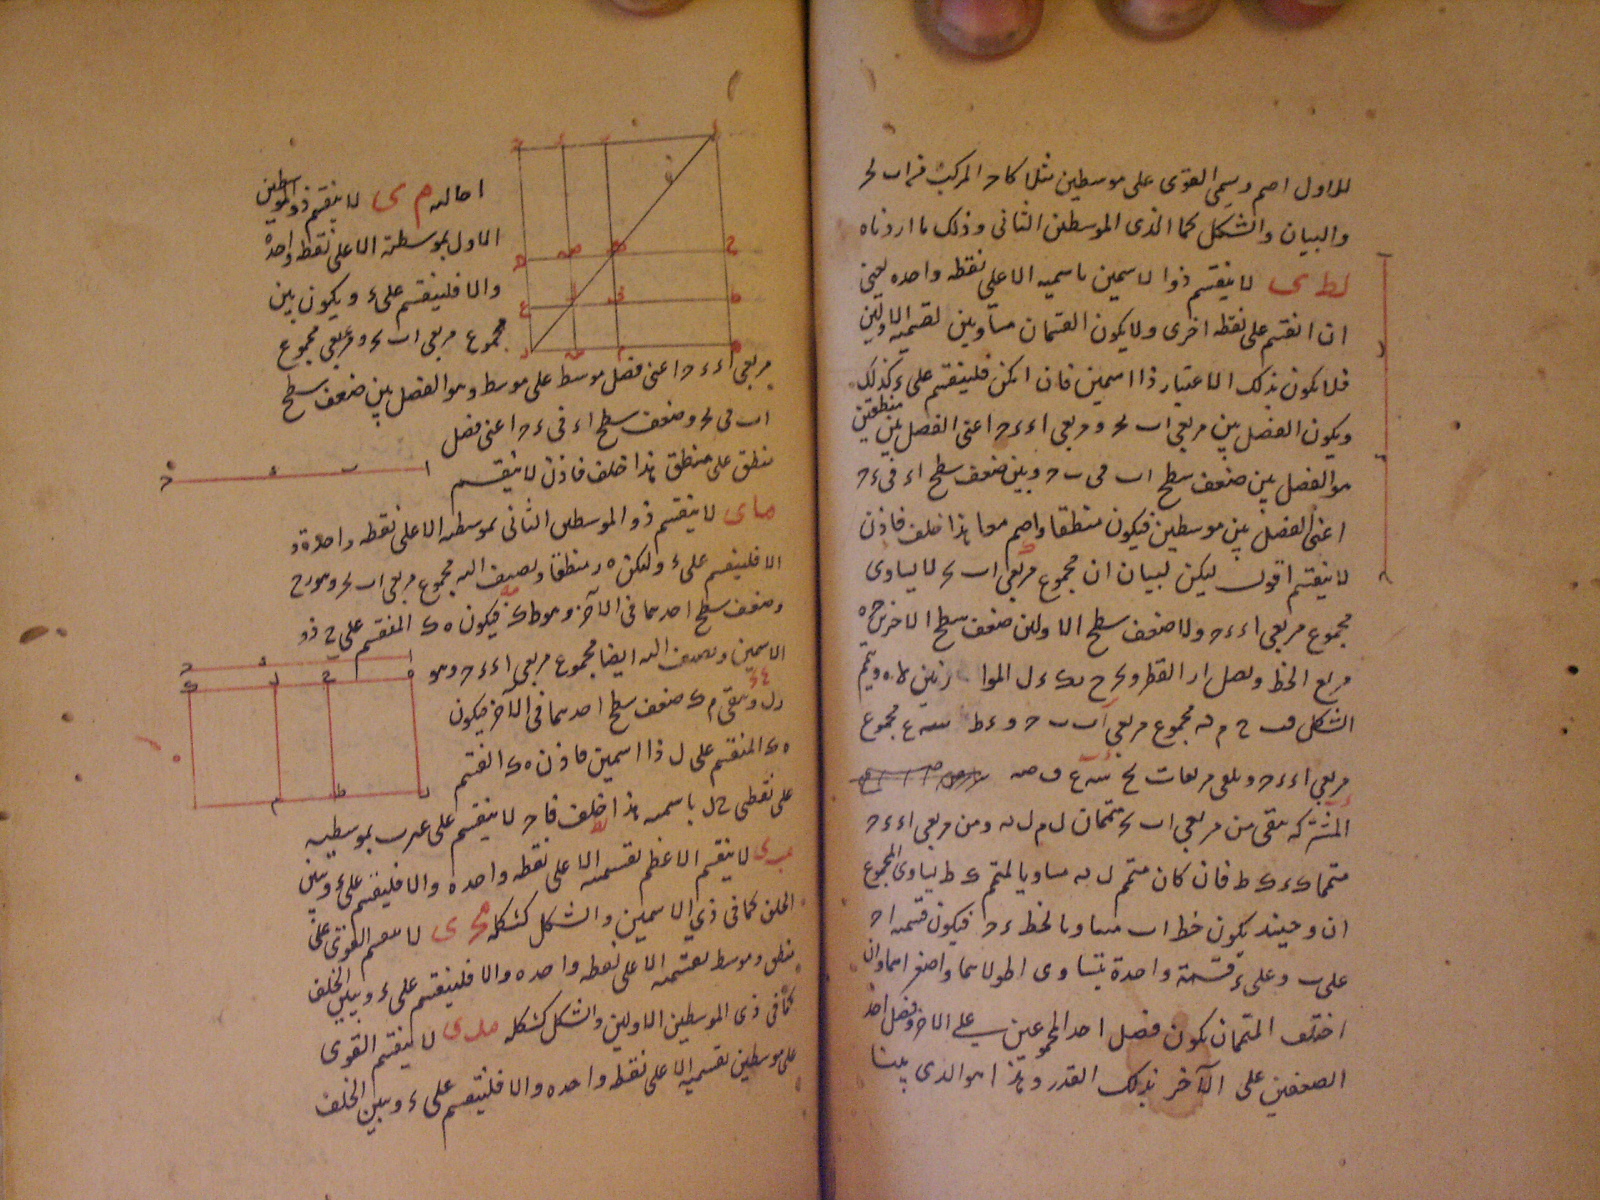 للاول اصم وسمى القوى على موسطين مثلا كا حـ المركب من اب بحـ
والبيان والشكل كما الذى الموسطين الثانى وذلك ما اردناه
لط ى لا ينقسم ذو الاسمين باسميه الا على نقطه واحده يعنى
ان انقسم على نقطه اخرى ولا يكون القسمان مساويين لقسميه الاولين
فلا يكون بذلك الاعتبار ذا اسمين فان امكن فلينقسم على ء كذلك
ويكون الفضل بين مربعى اب بحـ ومربعى اء ء حـ اعنى الفضل بين منطقين
هو الفضل بين ضعف سطح اب فى ب حـ وبين ضعف سطح اء فى ء حـ
اعنى الفضل بين موسطين فيكون منطقا واصم معا هذا خلف فاذن
لا ينقسم اقول ليكن لبيان ان مجموع مربعى اب بحـ لا يساوى
مجموع مربعى اء ء حـ ولا ضعف سطح الاولين ضعف سطح الاخرين
مربع الخط ونصل ار القطر ونخرج
الشكل مجموع مربعى اب ب حـ و مجموع
مربعى اء ء حـ ونلقى مربعات
المشتركه يبقى من مربعى اب بحـ متممان ل م ل ن ومن مربعى اء ء حـ
متمما ك ء ك ط فان كان متمم ل ن مساويا لمتمم ك ط تساوى المجموع
ان وحينئذ يكون خط اب مساويا لخط ء حـ فيكون قسمة ا حـ
على ب وعلى ء قسمة واحدة يتساوى اطولاهما واصغراهما وان
اختلف المتممان يكون فضل احد المجموعين على الاخر وفضل احد
الضعفين على الآخر بذلك القدر وهذا هو الذى بينا
احاله م ى لا ينقسم ذو الموسطين
الاول بموسطيه الا على نقطه واحده
والا فلينقسم على ء ويكون بين
مجموع مربعى اب بحـ ومربعى مجموع
مربعى اء ء حـ اعنى فضل موسط على موسط وهو الفضل بين ضعف سطح
اب فى بحـ وضعف سطح اء فى ء حـ اعنى فضل
منطق على منطق هذا خلف فاذن لا ينقسم
ما ى لا ينقسم ذو الموسطين الثانى بموسطيه الا على نقطه واحدة و
الا فلينقسم على ء وليكن ه ر منطقا ونضيف اليه مجموع مربعى اب بحـ وهو ر ح
وضعف سطح احدهما فى الآخر وهو ط ك فيكون ه ك المنقسم على ح ذو
الاسمين ونضيف اليه ايضا مجموع مربعى اء ء حـ وهو
ر ل ويبقى م ك ضعف سطح احدهما فى الآخر فيكون
ه ك المنقسم على ل ذا اسمين فاذن ه ك انقسم
على نقطتى ح ل باسميه هذا خلف فا حـ لا ينقسم على غير ب بموسطيه
مب ى لا ينقسم الاعظم بقسميه الا على نقطه واحده والا فلينقسم على ء ويبين
الخلف كما فى ذى الاسمين والشكل كشكله مج ى لا ينقسم القوى على
منطق وموسط بقسميه الا على نقطه واحده والا فلينقسم على ء ويبين الخلف
كما فى ذى الموسطين الاولين والشكل كشكله مد ى لا ينقسم القوى
على موسطين بقسميه الا على نقطه واحده والا فلينقسم على ء ويبين الخلف